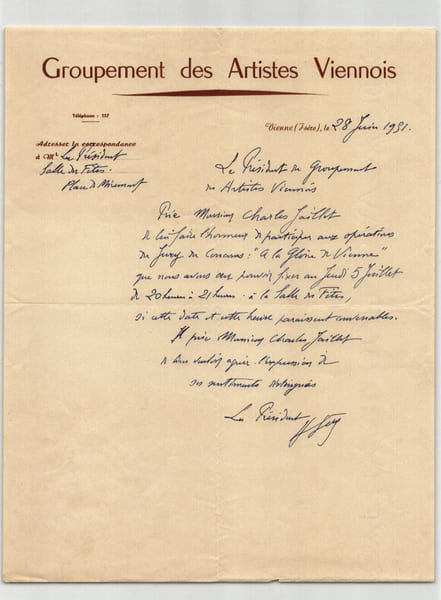 Groupement des Artistes Viennois
Téléphone : 117
Vienne (Isère), le 28 Juin 1951.
Adresser la correspondance
à Mr Le Président
Salle des Fêtes.
Place de Miremont
Le Président du Groupement
des Artistes Viennois
Prie Monsieur Charles Jaillet
de lui faire l'honneur de participer aux opérations
du Jury du Concours : "A la Gloire de Vienne"
que nous avons cru pouvoir fixer au Jeudi 5 Juillet
de 20 heures à 21 heures - à la Salle des Fêtes,
si cette date et cette heure paraissent convenables.
Il prie Monsieur Charles Jaillet
de bien vouloir agréer l'expression de
ses sentiments distingués
Le Président